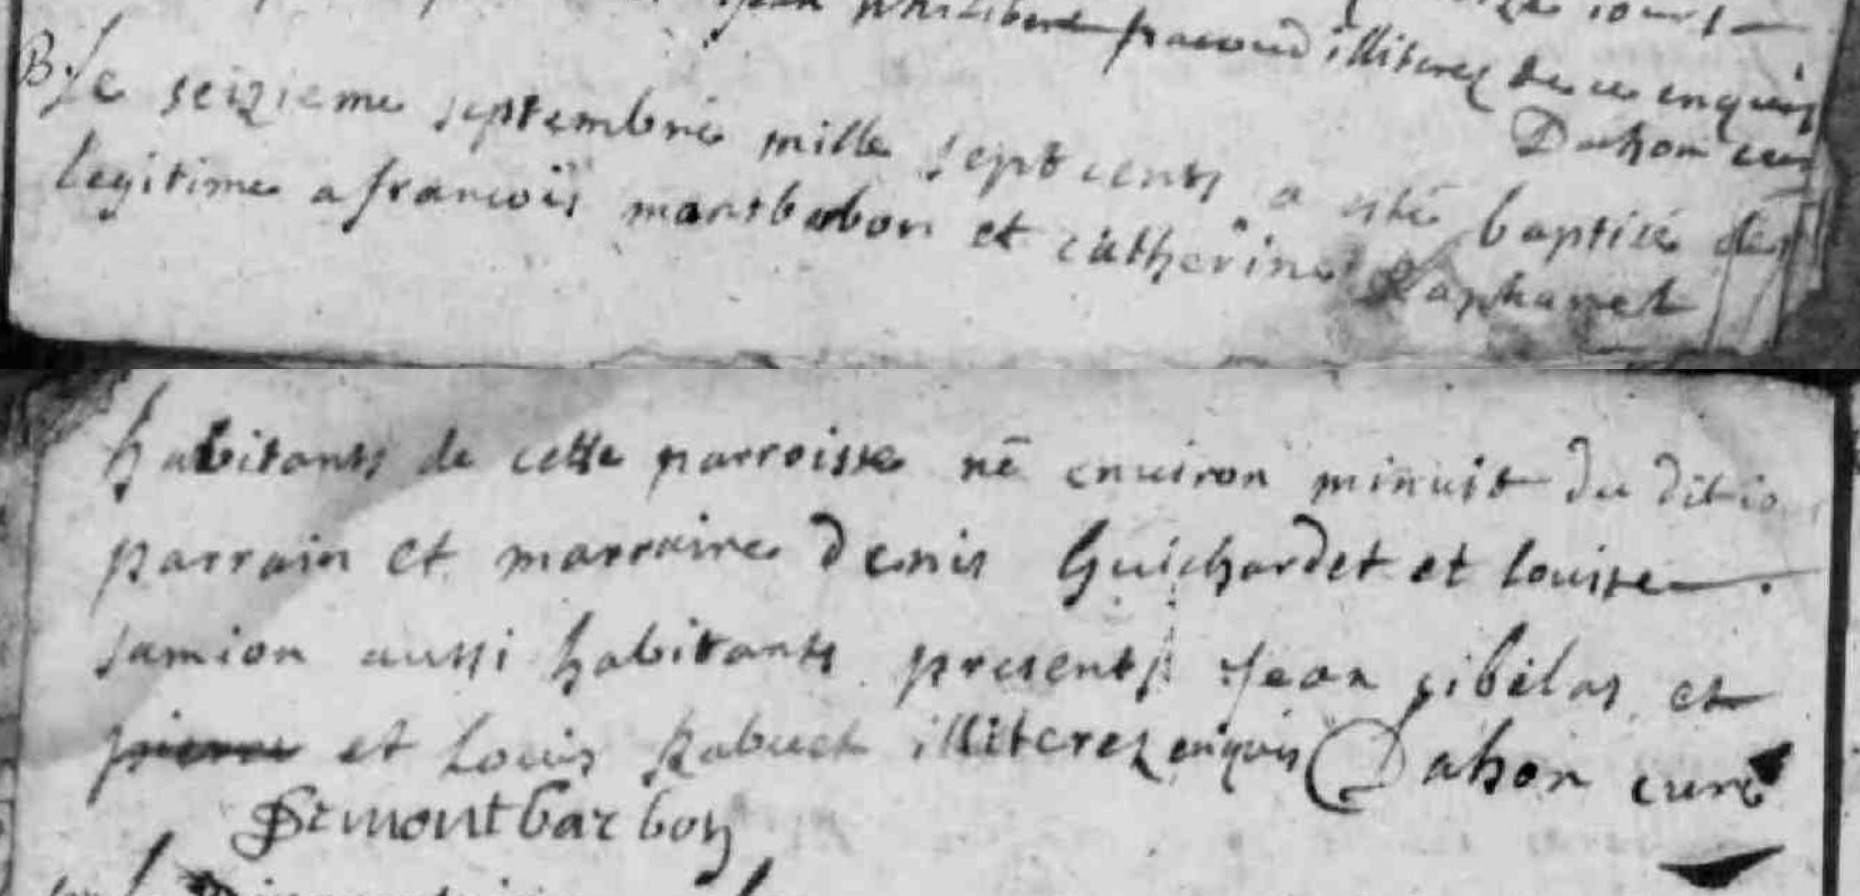 illiterez de ce enquis
Dahon cure
B. Le seizieme septembre mille sept cents a esté baptisé denis
legitime a francois montbarbon et catherine Raphanel
habitants de cette parroisse né environ minuit du dit jo
parrain et marraine denis Guichardet et louise
Jamion aussi habitants presents Jean gibelas et
pierre et Louis Rabuet illiterez enquis Dahon curé
montbarbon